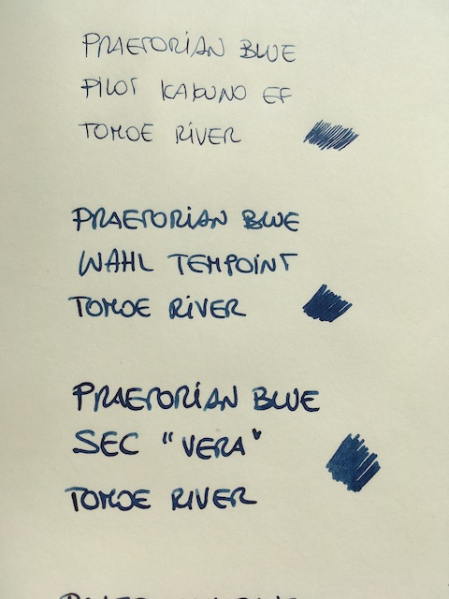 PRAETORIAN BLUE
PILOT KAKUNO EF
TOMOE RIVER
PRAETORIAN BLUE
WAHL TEMPOINT
TOMOE RIVER
PRAETORIAN BLUE
SEC "VERA"
TOMOE RIVER